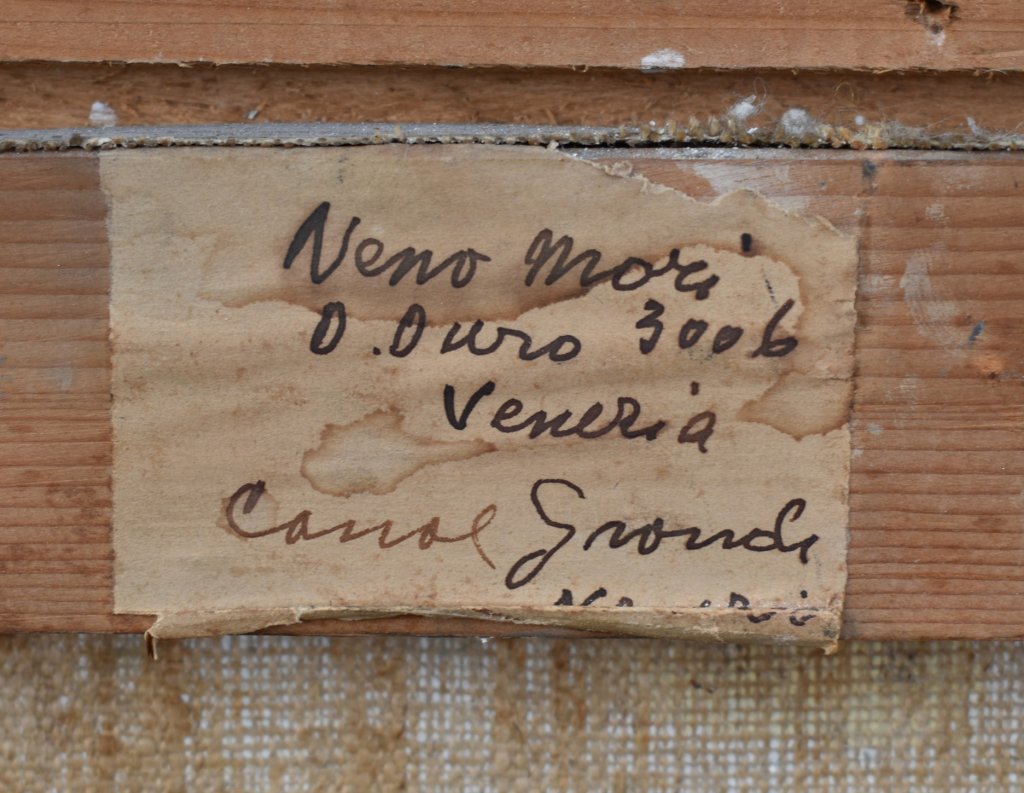 Neno Mori
D. Duro 3006
Venezia
Canal Grande